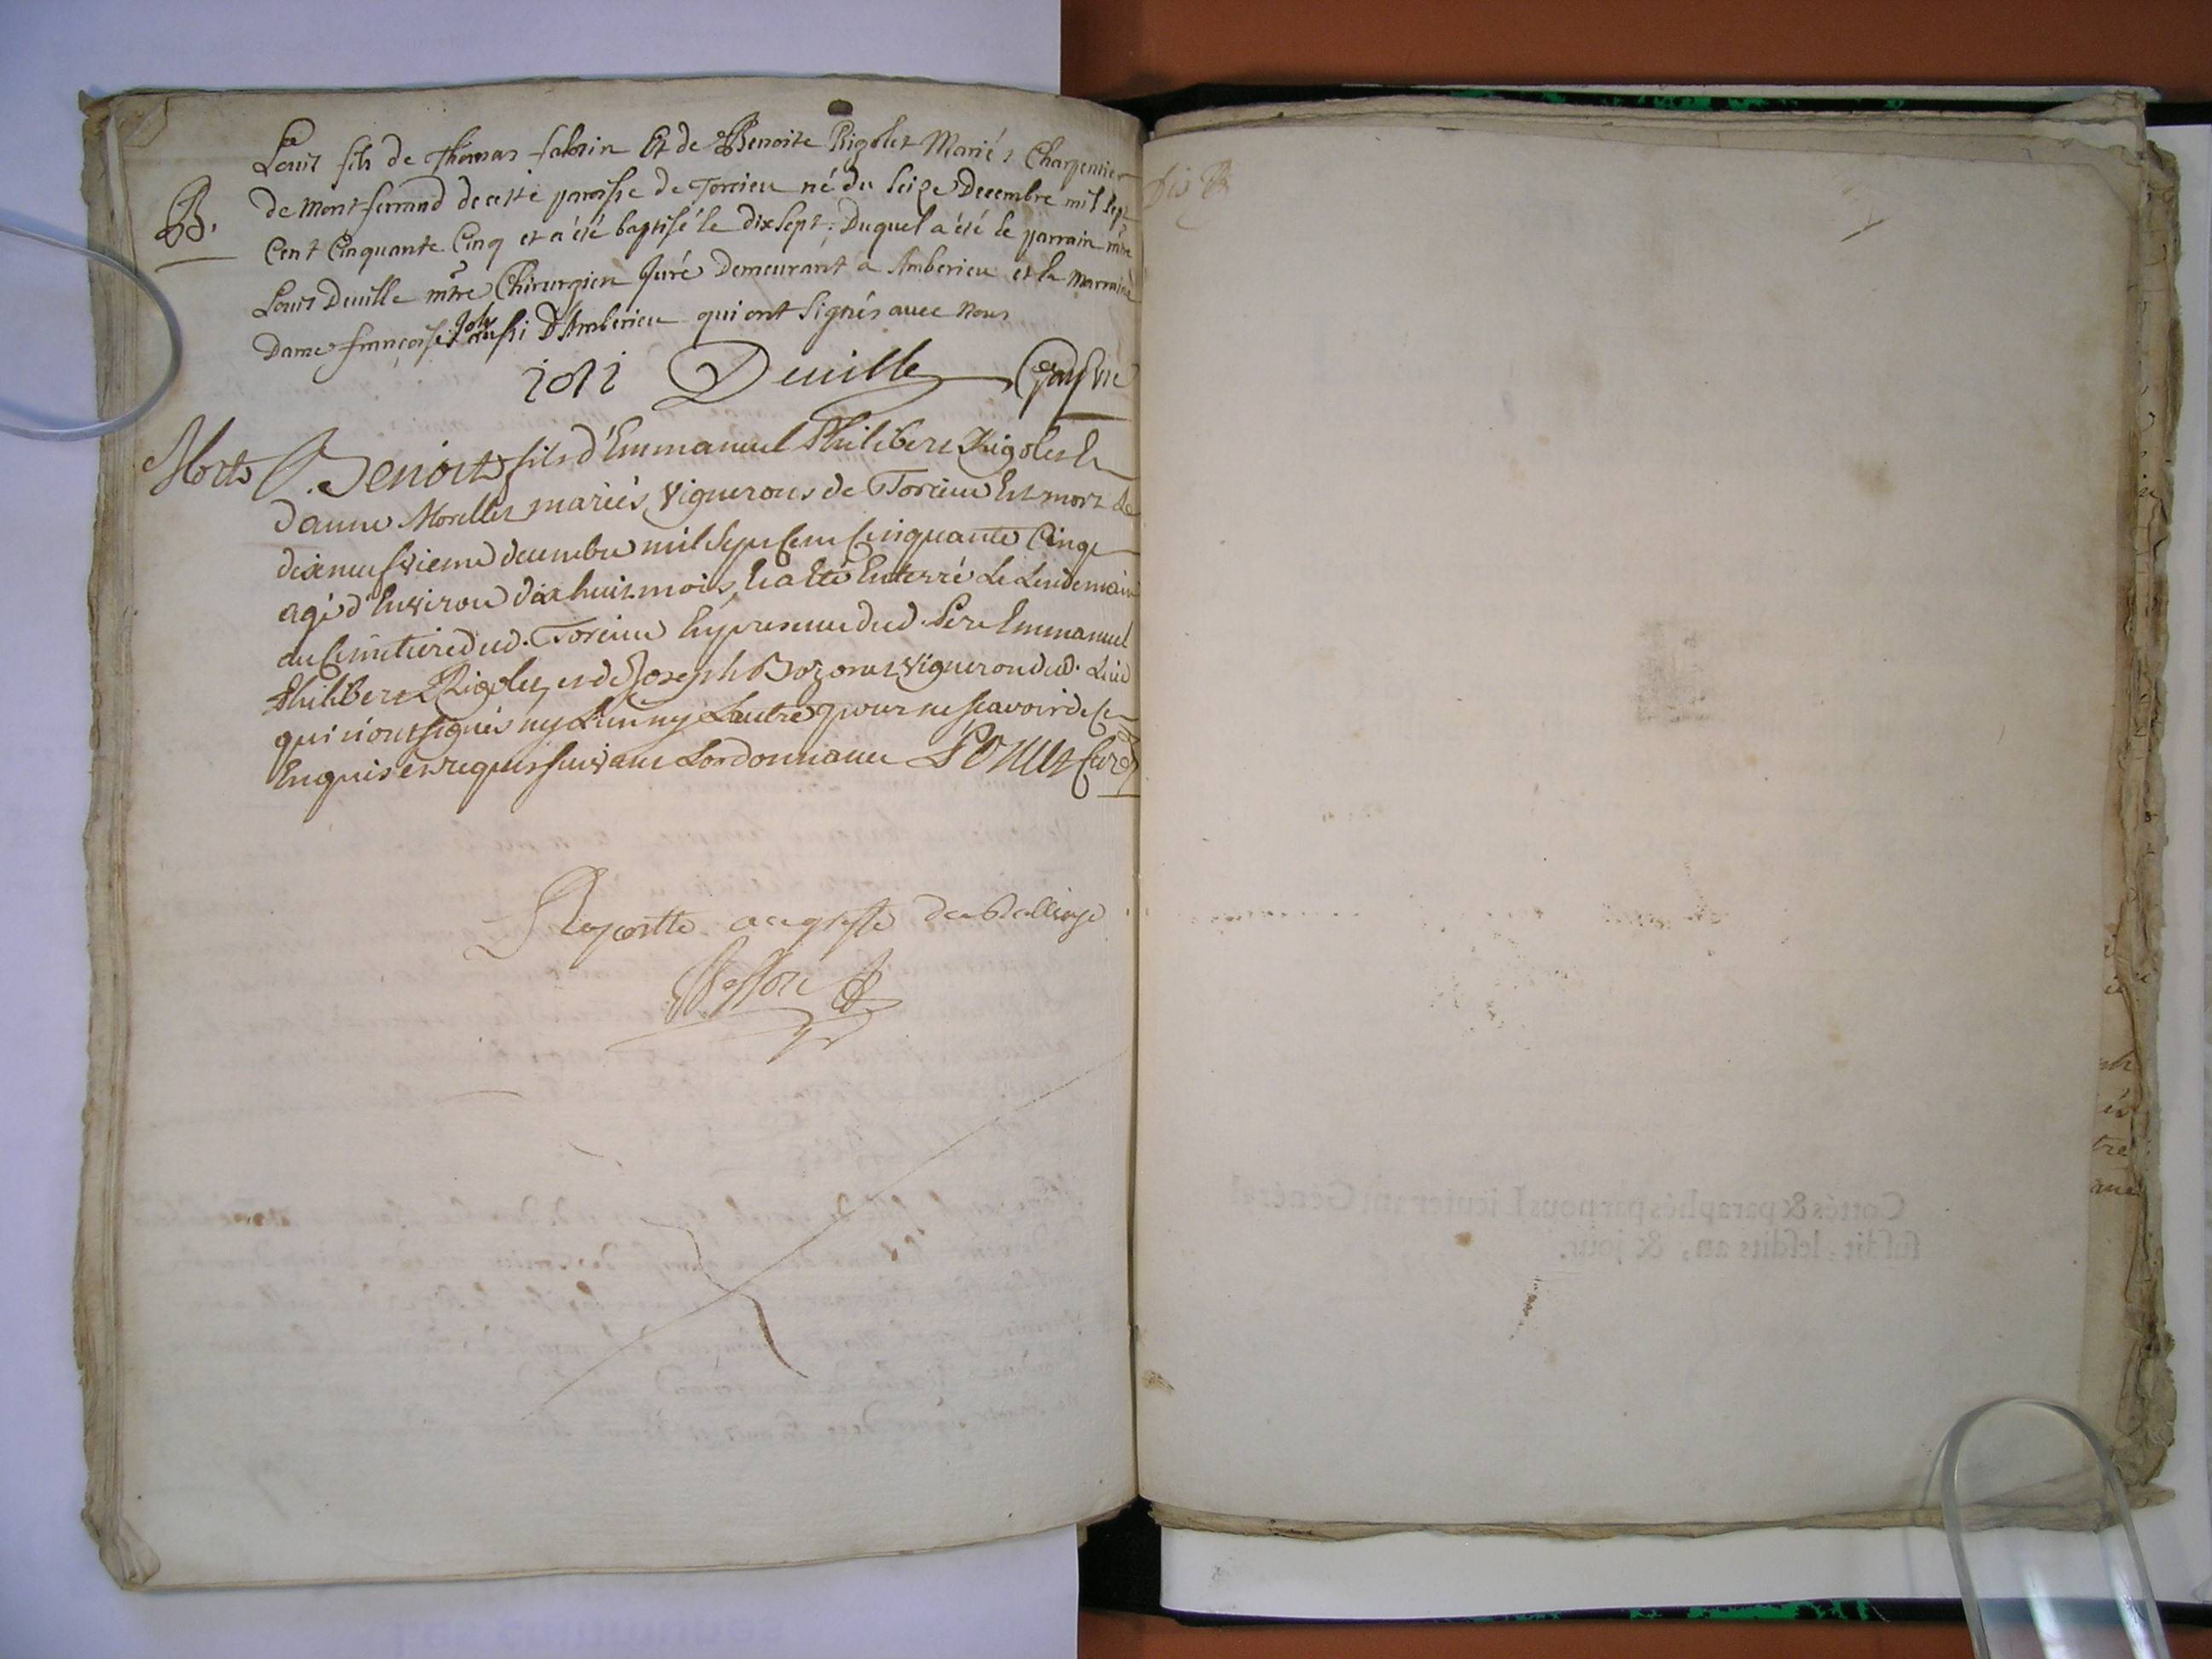 Louis fils de Thomas fabrin Et de Benoite Rigolet Mariés Charpentier
B. de Montferrand de cette paroisse de Torcieu né du seize Decembre mil sept
Cent Cinquante Cinq et a été baptisé le dix sept; Duquel a été le parrain mtre
Louis Deville mtre Chirurgien Juré Demeurant a Amberieu et la marraine
Dame françoise Joli aussi D'Amberieu qui ont signés avec nous
joli Deville
Morts Benoit fils d'Emmanuel Philibert Rigolet Et
d'anne Morellet mariés Vignerons de Torcieu Est mort le
dixneufvieme decembre mil sept Cent Cinquante Cinq
agé d'Environ dix huit mois, Et a Eté Enterré Le Lendemain
au Cimetiere dud. Torcieu En presence dud. Pere Emmanuel
Philibert Rigolet, et de Joseph Bozonet Vigneron dud. Lieu
qui n'ont signés ny L'un ny L'autre pour ne scavoir de Ce
Enquis et requis suivant Lordonnance Curé
Raporte au greffe de
Cottés & paraphés par nous Lieutenant Général
susdit, lesdits an, & jour.